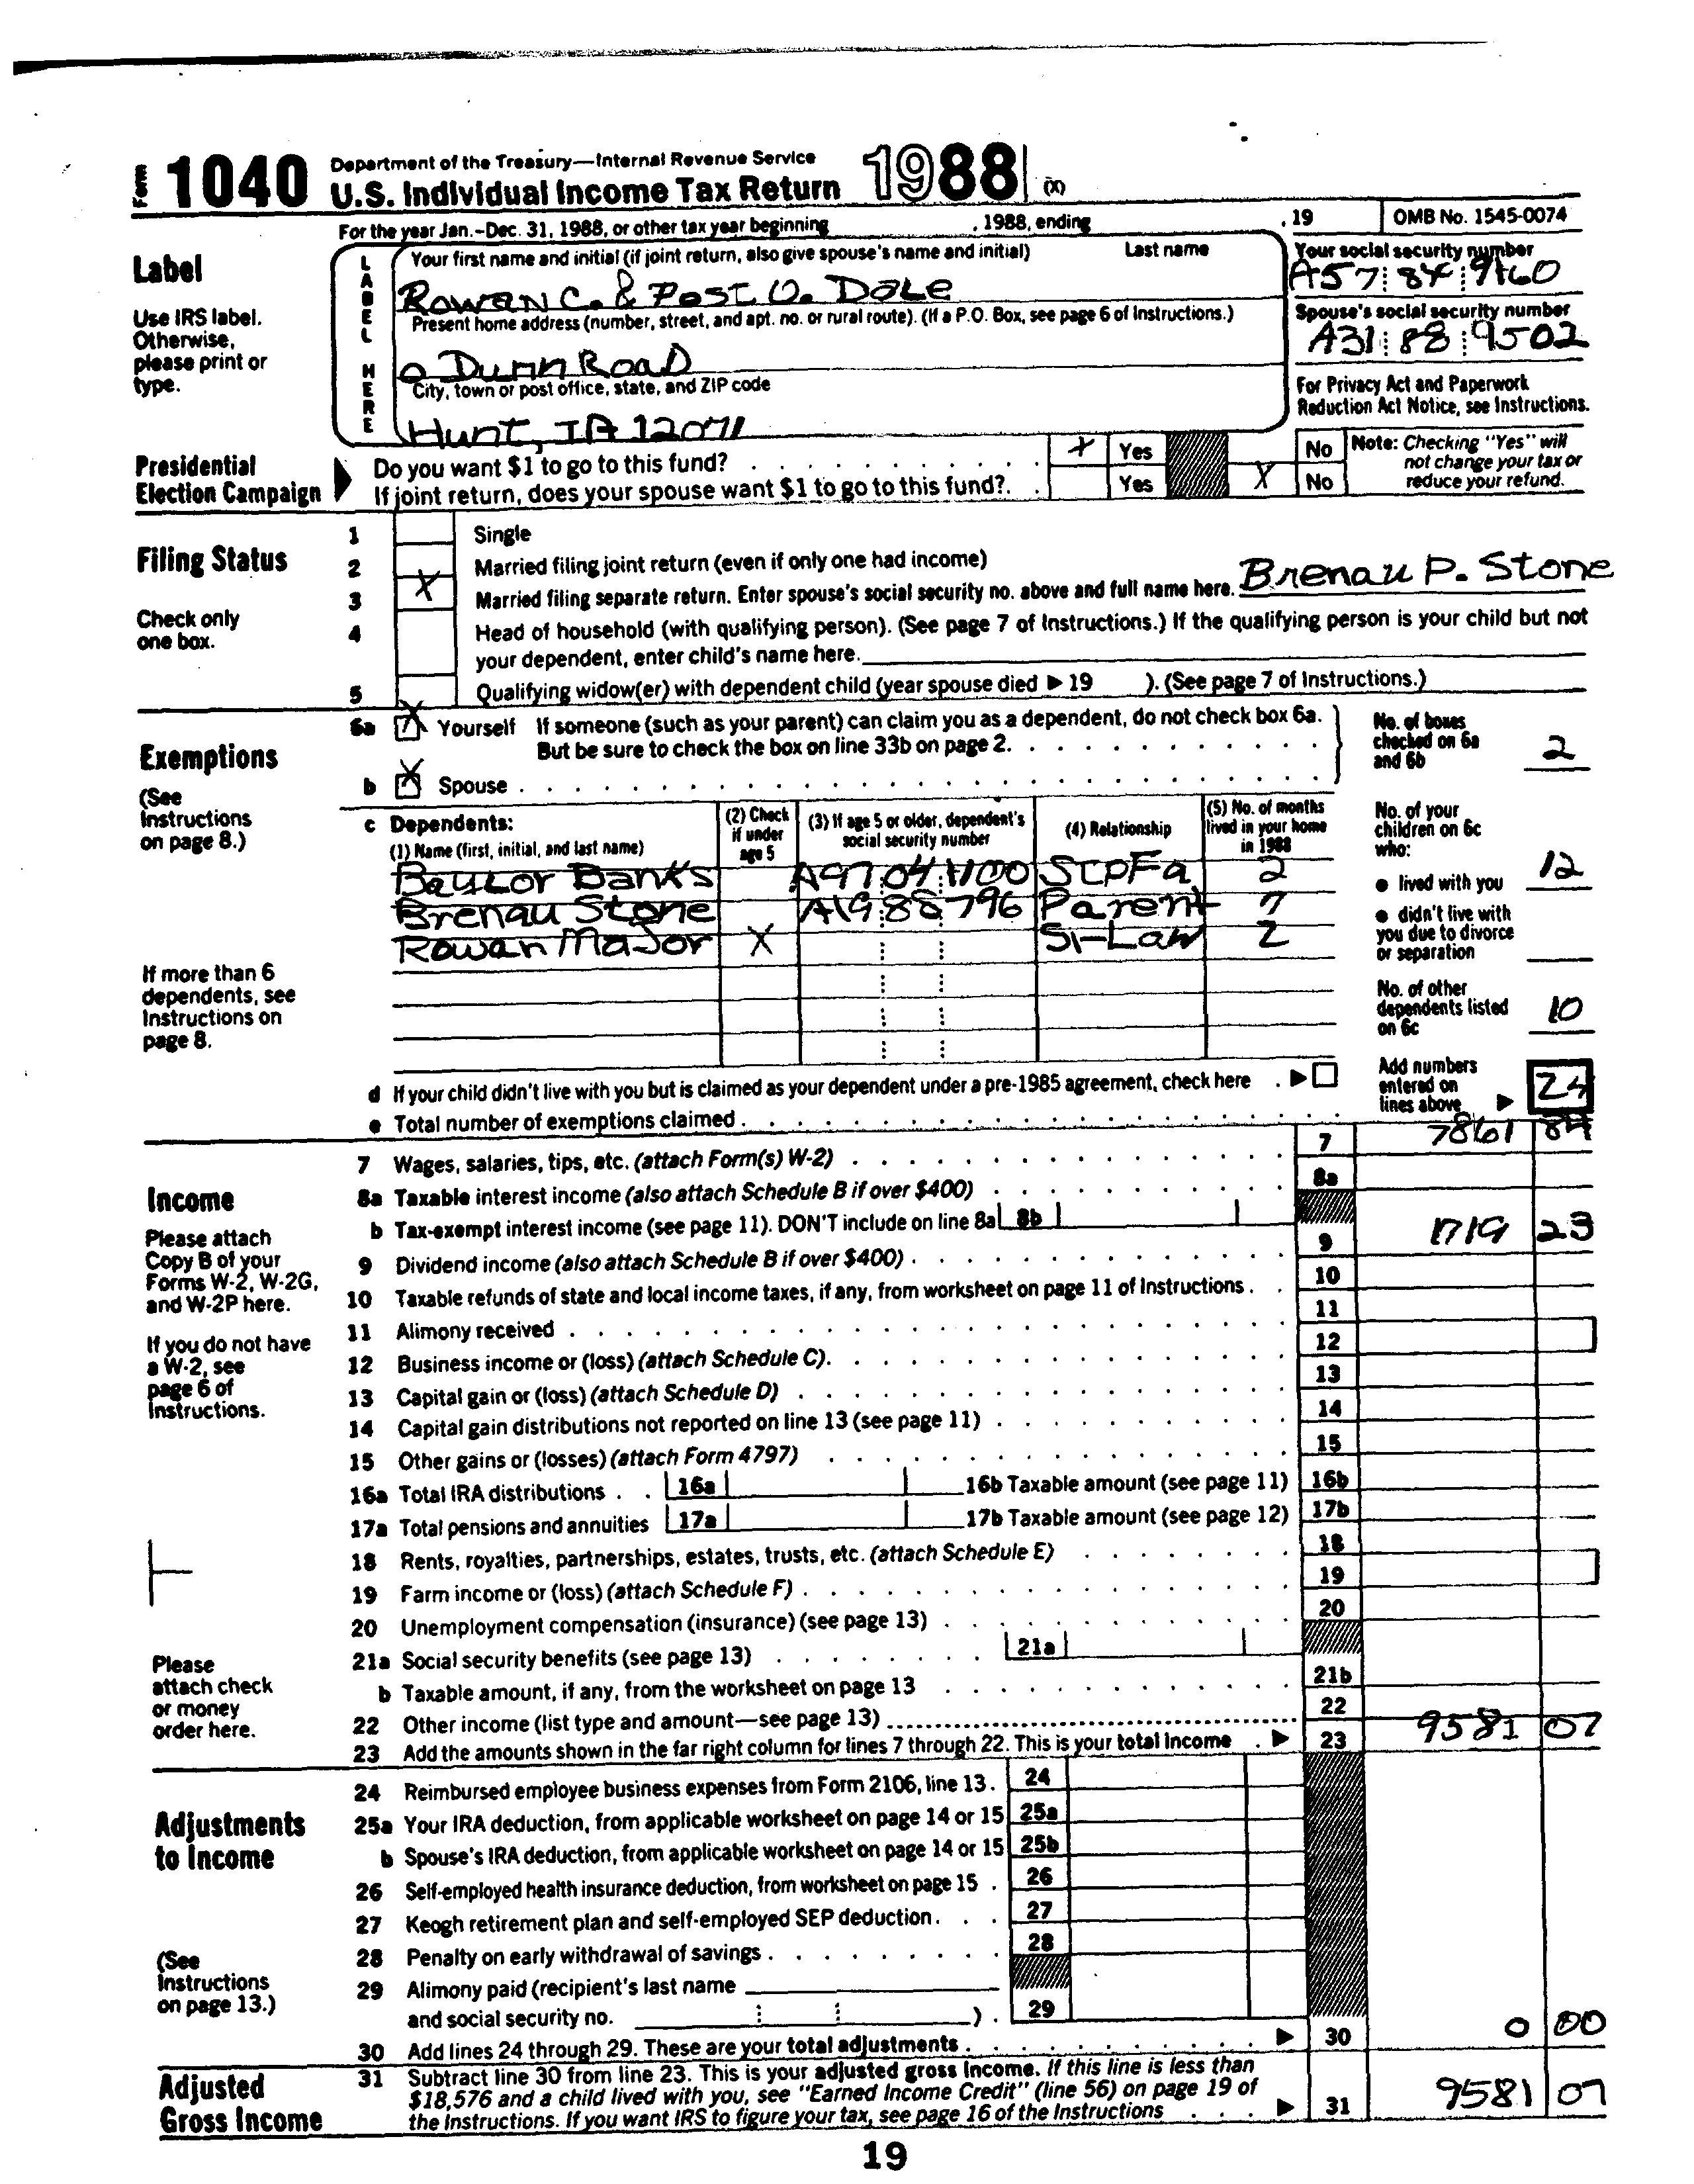 Form 1040 Department of the Treasury—Internal Revenue Service
U.S. Individual Income Tax Return 1988 (X)
For the year Jan.-Dec. 31, 1988, or other tax year beginning , 1988, ending , 19 OMB No. 1545-0074
Label
Use IRS label. Otherwise, please print or type.
LABEL HERE
Your first name and initial (if joint return, also give spouse's name and initial) Last name
Rowan C. & Post O. Dale
Your social security number
A57 84 9160
Present home address (number, street, and apt. no. or rural route). (If a P.O. Box, see page 6 of Instructions.)
0 Dunn Road
Spouse's social security number
A31 88 9502
City, town or post office, state, and ZIP code
Hunt, IA 12071
For Privacy Act and Paperwork Reduction Act Notice, see Instructions.
Presidential Election Campaign
Do you want $1 to go to this fund? X Yes No
If joint return, does your spouse want $1 to go to this fund?. Yes X No
Note: Checking "Yes" will not change your tax or reduce your refund.
Filing Status
Check only one box.
1 Single
2 Married filing joint return (even if only one had income)
3 X Married filing separate return. Enter spouse's social security no. above and full name here. Brenau P. Stone
4 Head of household (with qualifying person). (See page 7 of Instructions.) If the qualifying person is your child but not
your dependent, enter child's name here.
5 Qualifying widow(er) with dependent child (year spouse died ▶ 19 ). (See page 7 of Instructions.)
Exemptions
(See Instructions on page 8.)
6a X Yourself If someone (such as your parent) can claim you as a dependent, do not check box 6a.
But be sure to check the box on line 33b on page 2.
b X Spouse
No. of boxes checked on 6a and 6b 2
c Dependents:
(1) Name (first, initial, and last name) (2) Check if under age 5 (3) If age 5 or older, dependent's social security number (4) Relationship (5) No. of months lived in your home in 1988
Baylor Banks A97 04 1100 StpFa 2
Brenau Stone A19 88 796 Parent 7
Rowan Major X Si-Law 2
If more than 6 dependents, see Instructions on page 8.
No. of your children on 6c who:
● lived with you 12
● didn't live with you due to divorce or separation
No. of other dependents listed on 6c 10
d If your child didn't live with you but is claimed as your dependent under a pre-1985 agreement, check here . ▶
e Total number of exemptions claimed
Add numbers entered on lines above ▶ 24
Income
Please attach Copy B of your Forms W-2, W-2G, and W-2P here.
If you do not have a W-2, see page 6 of Instructions.
Please attach check or money order here.
7 Wages, salaries, tips, etc. (attach Form(s) W-2) 7 7861 84
8a Taxable interest income (also attach Schedule B if over $400) 8a
b Tax-exempt interest income (see page 11). DON'T include on line 8a 8b
9 Dividend income (also attach Schedule B if over $400) 9 1719 23
10 Taxable refunds of state and local income taxes, if any, from worksheet on page 11 of Instructions 10
11 Alimony received 11
12 Business income or (loss) (attach Schedule C). 12
13 Capital gain or (loss) (attach Schedule D) 13
14 Capital gain distributions not reported on line 13 (see page 11) 14
15 Other gains or (losses) (attach Form 4797) 15
16a Total IRA distributions 16a 16b Taxable amount (see page 11) 16b
17a Total pensions and annuities 17a 17b Taxable amount (see page 12) 17b
18 Rents, royalties, partnerships, estates, trusts, etc. (attach Schedule E) 18
19 Farm income or (loss) (attach Schedule F) 19
20 Unemployment compensation (insurance) (see page 13) 20
21a Social security benefits (see page 13) 21a
b Taxable amount, if any, from the worksheet on page 13 21b
22 Other income (list type and amount—see page 13) 22
23 Add the amounts shown in the far right column for lines 7 through 22. This is your total income ▶ 23 9581 07
Adjustments to Income
(See Instructions on page 13.)
24 Reimbursed employee business expenses from Form 2106, line 13. 24
25a Your IRA deduction, from applicable worksheet on page 14 or 15 25a
b Spouse's IRA deduction, from applicable worksheet on page 14 or 15 25b
26 Self-employed health insurance deduction, from worksheet on page 15 26
27 Keogh retirement plan and self-employed SEP deduction. 27
28 Penalty on early withdrawal of savings 28
29 Alimony paid (recipient's last name
and social security no. ) 29
30 Add lines 24 through 29. These are your total adjustments ▶ 30 0 00
Adjusted Gross Income
31 Subtract line 30 from line 23. This is your adjusted gross income. If this line is less than
$18,576 and a child lived with you, see "Earned Income Credit" (line 56) on page 19 of
the Instructions. If you want IRS to figure your tax, see page 16 of the Instructions ▶ 31 9581 07
19